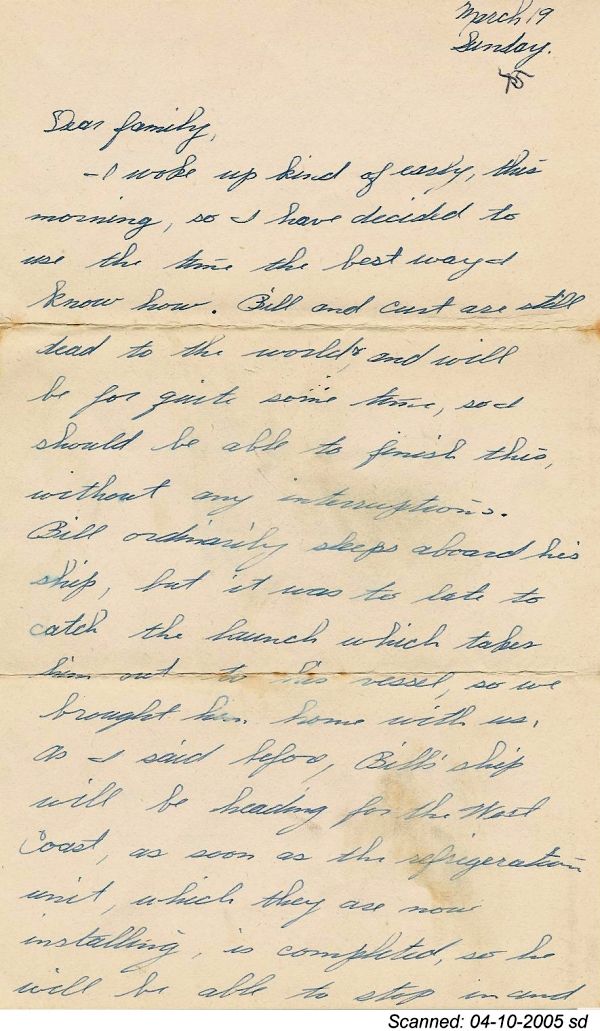 March 19
Sunday.
45
Dear family,
- I woke up kind of early, this
morning, so I have decided to
use the time the best way I
know how. Bill and Curt are still
dead to the world, and will
be for quite some time, so I
should be able to finish this,
without any interruptions.
Bill ordinarily sleeps aboard his
ship, but it was to late to
catch the launch which takes
him out to his vessel, so we
brought him home with us.
As I said before, Bill's ship
will be heading for the West
Coast, as soon as the refrigeration
unit, which they are now
installing, is completed, so he
will be able to stop in and
Scanned: 04-10-2005 sd